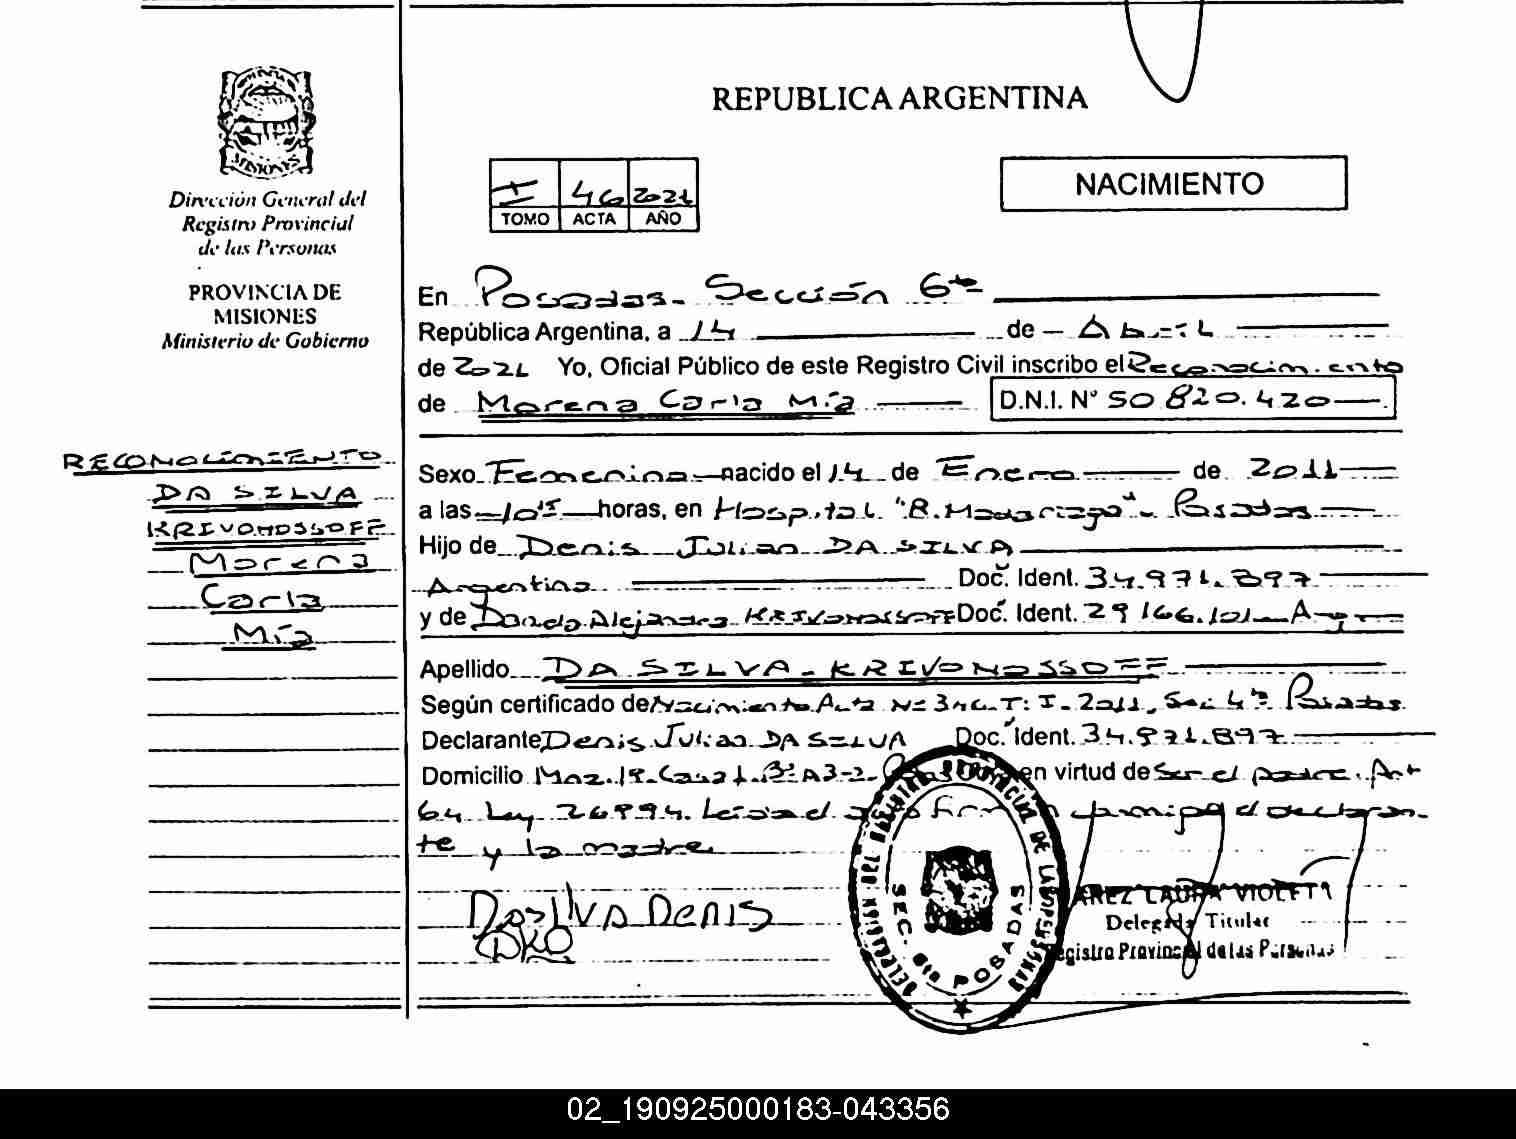 REPUBLICA ARGENTINA
MISIONES
Dirección General del
Registro Provincial
de las Personas
PROVINCIA DE
MISIONES
Ministerio de Gobierno
I 46 2021
TOMO ACTA AÑO
NACIMIENTO
En Posadas - Sección 6ta
República Argentina, a 14 de Abril
de 2021 Yo, Oficial Público de este Registro Civil inscribo el Reconocimiento
de Morena Carla Mía D.N.I. N° 50.820.420
RECONOCIMIENTO
DA SILVA
KRIVONOSSOFF
Morena
Carla
Mía
Sexo Femenina nacido el 14 de Enero de 2011
a las 10 horas, en Hospital "R. Madariaga" - Posadas
Hijo de Denis Julian DA SILVA
Argentina Doc. Ident. 34.971.897
y de Alejandra KRIVONOSSOFF Doc. Ident. 29.166.101 Arg
Apellido DA SILVA - KRIVONOSSOFF
Según certificado de Nacimiento Acta N° 346 T: I - 2011, Sec 4ta Posadas
Declarante Denis Julian DA SILVA Doc. Ident. 34.971.897
Domicilio Mnz. 19 - Casa 1 - B° A3-2 - en virtud de Ser el padre. Art
64 Ley 26994. Leída el acta firman conmigo el declaran-
te y la madre.
Da Silva Denis
DKO
DELEGACION DEL REGISTRO PROVINCIAL DE LAS PERSONAS
SEC. 6ta POSADAS
AREZ LAURA VIOLETA
Delegada Titular
Registro Provincial de las Personas
02_190925000183-043356